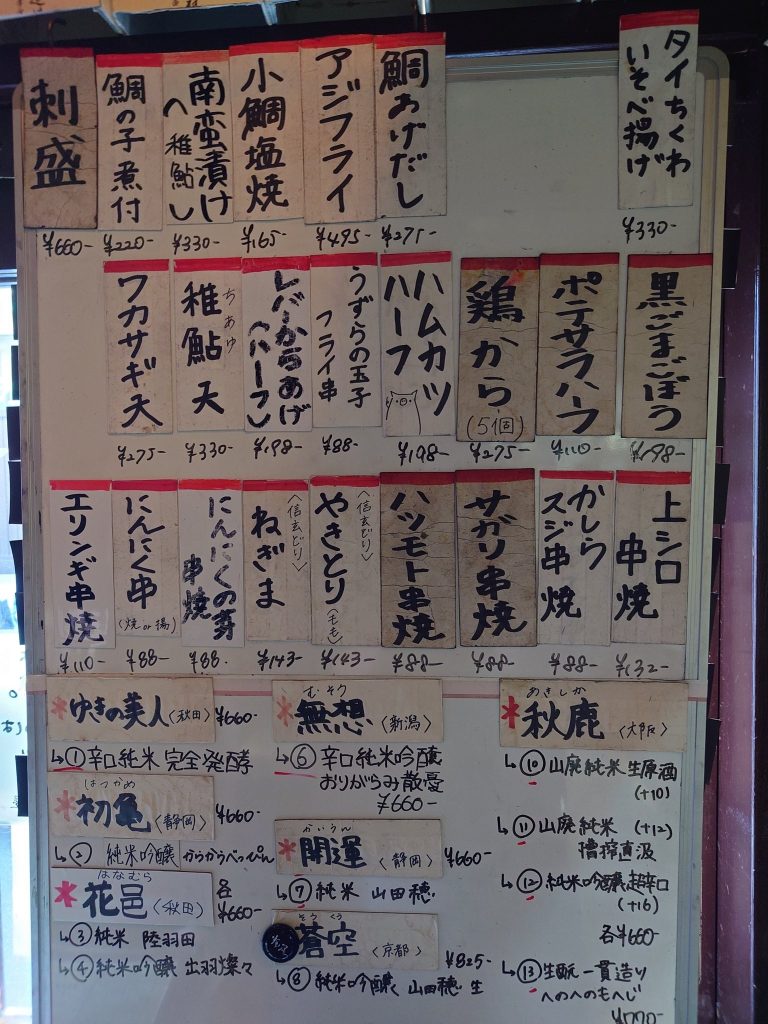 タイちくわ
いそべ揚げ
¥330-
鯛あげだし
¥275-
アジフライ
¥495-
小鯛塩焼
¥165-
南蛮漬け
〈稚鮎〉
¥330-
鯛の子煮付
¥220-
刺盛
¥660-
黒ごまごぼう
¥198-
ポテサラハーフ
¥110-
鶏から
(5個)
¥275-
ハムカツ
ハーフ
¥198-
うずらの玉子
フライ串
¥88-
レバーからあげ
(ハーフ)
¥198-
ちあゆ
稚鮎天
¥330-
ワカサギ天
¥275-
上シロ
串焼
¥132-
かしら
スジ串焼
¥88-
サガリ串焼
¥88-
ハツモト串焼
¥88-
〈信玄どり〉
やきとり(もも)
¥143-
〈信玄どり〉
ねぎま
¥143-
にんにくの芽
串焼
¥88-
にんにく串
(焼or揚)
¥88-
エリンギ串焼
¥110-
*ゆきの美人〈秋田〉 ¥660-
↳①辛口純米 完全発酵
はつかめ
*初亀〈静岡〉 ¥660-
↳② 純米吟醸 からからべっぴん
はなむら
*花邑〈秋田〉 各¥660-
↳③純米 陸羽田
↳④純米吟醸 出羽燦々
むそう
*無想〈新潟〉
↳⑥ 辛口純米吟醸
おりがらみ散憂
¥660-
かいうん
*開運〈静岡〉 ¥660-
↳⑦ 純米 山田穂
そうくう
蒼空〈京都〉 ¥825-
↳⑧ 純米吟醸 山田穂 生
あきしか
*秋鹿〈大阪〉
↳⑩山廃純米生原酒
(+10)
↳⑪山廃純米 (+12)
槽搾直汲
↳⑫純米吟醸超辛口
(+16)
各¥660-
↳⑬生酛一貫造り
へのへのもへじ
¥770-